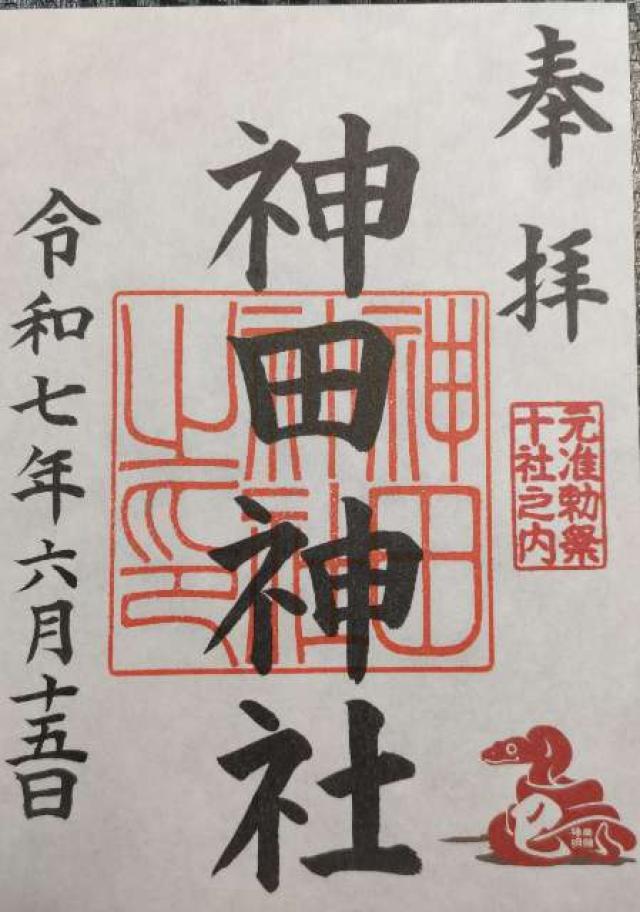 奉拝
元准勅祭
十社之内
神田神社
神田神社之印
令和七年六月十五日
巳